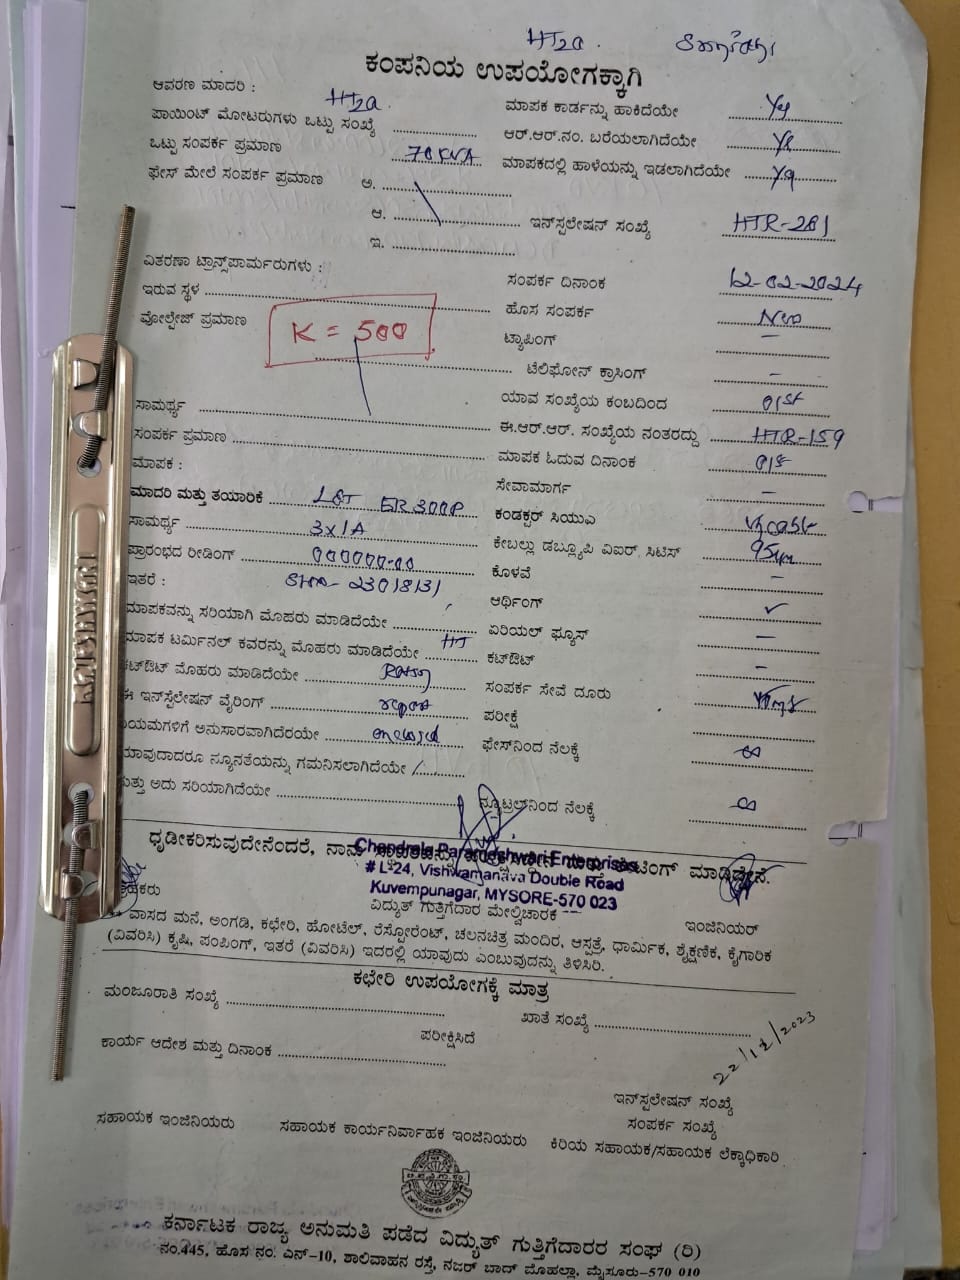 HT2a.
ಕಂಪನಿಯ ಉಪಯೋಗಕ್ಕಾಗಿ
ಆವರಣ ಮಾದರಿ : HT2a.
ಪಾಯಿಂಟ್ ಮೋಟರುಗಳು ಒಟ್ಟು ಸಂಖ್ಯೆ
ಒಟ್ಟು ಸಂಪರ್ಕ ಪ್ರಮಾಣ 70 KVA
ಫೇಸ್ ಮೇಲೆ ಸಂಪರ್ಕ ಪ್ರಮಾಣ ಅ.
ಆ.
ಇ.
ವಿತರಣಾ ಟ್ರಾನ್ಸ್‌ಪಾರ್ಮರುಗಳು :
ಇರುವ ಸ್ಥಳ
ವೋಲ್ಟೇಜ್ ಪ್ರಮಾಣ
K = 500
ಸಾಮರ್ಥ್ಯ
ಸಂಪರ್ಕ ಪ್ರಮಾಣ
ಮಾಪಕ :
ಮಾದರಿ ಮತ್ತು ತಯಾರಿಕೆ L&T ER300P
ಸಾಮರ್ಥ್ಯ 3x1A
ಪ್ರಾರಂಭದ ರೀಡಿಂಗ್ 000000.00
ಇತರೆ :
ಮಾಪಕವನ್ನು ಸರಿಯಾಗಿ ಮೊಹರು ಮಾಡಿದೆಯೇ
ಮಾಪಕ ಟರ್ಮಿನಲ್ ಕವರನ್ನು ಮೊಹರು ಮಾಡಿದೆಯೇ HT
ಕಟ್‌ಔಟ್ ಮೊಹರು ಮಾಡಿದೆಯೇ Rating
ಈ ಇನ್‌ಸ್ಟಲೇಷನ್ ವೈರಿಂಗ್ report
ನಿಯಮಗಳಿಗೆ ಅನುಸಾರವಾಗಿದೆರಯೇ enclosed
ಯಾವುದಾದರೂ ನ್ಯೂನತೆಯನ್ನು ಗಮನಿಸಲಾಗಿದೆಯೇ
ಮತ್ತು ಅದು ಸರಿಯಾಗಿದೆಯೇ
ಮಾಪಕ ಕಾರ್ಡನ್ನು ಹಾಕಿದೆಯೇ Yes
ಆರ್.ಆರ್.ನಂ. ಬರೆಯಲಾಗಿದೆಯೇ Yes
ಮಾಪಕದಲ್ಲಿ ಹಾಳೆಯನ್ನು ಇಡಲಾಗಿದೆಯೇ Yes
ಇನ್‌ಸ್ಪಲೇಷನ್ ಸಂಖ್ಯೆ HTR-281
ಸಂಪರ್ಕ ದಿನಾಂಕ 12-02-2024
ಹೊಸ ಸಂಪರ್ಕ New
ಟ್ಯಾಪಿಂಗ್ –
ಟೆಲಿಫೋನ್ ಕ್ರಾಸಿಂಗ್ –
ಯಾವ ಸಂಖ್ಯೆಯ ಕಂಬದಿಂದ 01st
ಈ.ಆರ್.ಆರ್. ಸಂಖ್ಯೆಯ ನಂತರದ್ದು HTR-159
ಮಾಪಕ ಓದುವ ದಿನಾಂಕ 01st
ಸೇವಾಮಾರ್ಗ –
ಕಂಡಕ್ಟರ್ ಸಿಯುಎ
ಕೇಬಲ್ಲು ಡಬ್ಲ್ಯೂಪಿ ವಿಐರ್, ಸಿಟಿಸ್
ಕೊಳವೆ –
ಆರ್ಥಿಂಗ್ ✓
ಏರಿಯಲ್ ಫ್ಯೂಸ್ –
ಕಟ್‌ಔಟ್ –
ಸಂಪರ್ಕ ಸೇವೆ ದೂರು
ಪರೀಕ್ಷೆ
ಫೇಸ್‌ನಿಂದ ನೆಲಕ್ಕೆ ∞
ನ್ಯೂಟ್ರಲ್‌ನಿಂದ ನೆಲಕ್ಕೆ ∞
ಧೃಡೀಕರಿಸುವುದೇನೆಂದರೆ, ನಾನು ಮಾಡಿದ್ದೇನೆ.
Chandrala Parameshwari Enterprises
# L-24, Vishwamanava Double Road
Kuvempunagar, MYSORE-570 023
ವಿದ್ಯುತ್ ಗುತ್ತಿಗೆದಾರ ಮೇಲ್ವಿಚಾರಕ
ಇಂಜಿನಿಯರ್
** ವಾಸದ ಮನೆ, ಅಂಗಡಿ, ಕಛೇರಿ, ಹೋಟೆಲ್, ರೆಸ್ಟೋರೆಂಟ್, ಚಲನಚಿತ್ರ ಮಂದಿರ, ಆಸ್ಪತ್ರೆ, ಧಾರ್ಮಿಕ, ಶೈಕ್ಷಣಿಕ, ಕೈಗಾರಿಕ
(ವಿವರಿಸಿ) ಕೃಷಿ, ಪಂಪಿಂಗ್, ಇತರೆ (ವಿವರಿಸಿ) ಇದರಲ್ಲಿ ಯಾವುದು ಎಂಬುವುದನ್ನು ತಿಳಿಸಿರಿ.
ಕಛೇರಿ ಉಪಯೋಗಕ್ಕೆ ಮಾತ್ರ
ಮಂಜೂರಾತಿ ಸಂಖ್ಯೆ
ಖಾತೆ ಸಂಖ್ಯೆ
ಪರೀಕ್ಷಿಸಿದೆ
ಕಾರ್ಯ ಆದೇಶ ಮತ್ತು ದಿನಾಂಕ
22/12/2023
ಇನ್‌ಸ್ಪಲೇಷನ್ ಸಂಖ್ಯೆ
ಸಂಪರ್ಕ ಸಂಖ್ಯೆ
ಸಹಾಯಕ ಇಂಜಿನಿಯರು ಸಹಾಯಕ ಕಾರ್ಯನಿರ್ವಾಹಕ ಇಂಜಿನಿಯರು ಕಿರಿಯ ಸಹಾಯಕ/ಸಹಾಯಕ ಲೆಕ್ಕಾಧಿಕಾರಿ
ಕರ್ನಾಟಕ ರಾಜ್ಯ ಅನುಮತಿ ಪಡೆದ ವಿದ್ಯುತ್ ಗುತ್ತಿಗೆದಾರರ ಸಂಘ (ರಿ)
ನಂ.445, ಹೊಸ ನಂ. ಎನ್-10, ಶಾಲಿವಾಹನ ರಸ್ತೆ, ನಜರ್ ಬಾದ್ ಮೊಹಲ್ಲಾ, ಮೈಸೂರು-570 010